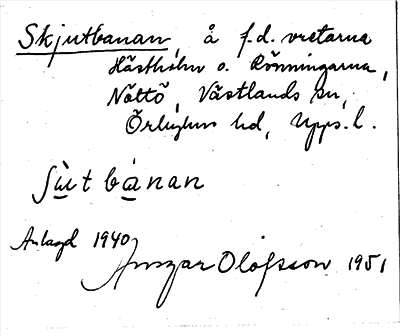 Skjutbanan, å f.d. vretarna
Hästholm o. Rönningarna,
Nöttö, Västlands sn,
Örbyhus hd, Upps. l.
ʃu̲t ba̲nan
Anlagd 1940
Ansgar Olofsson 1951